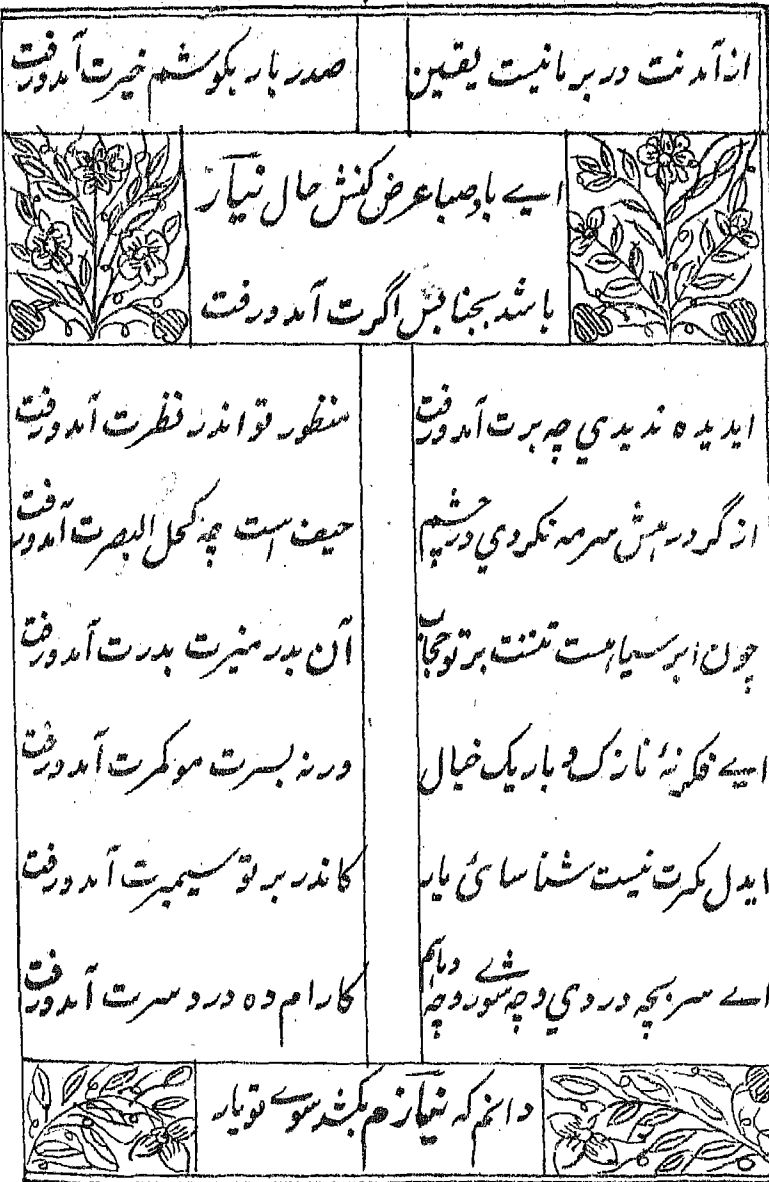 از آمدنت در بر ما نیست یقین صدر بار بگوشم خبرت آمد و رفت
اے باد صبا عرض کنش حال نیآز
باشد بجنابش اگرت آمد و رفت
ایدیده ندیدی چه برت آمد و رفت منظور تو اندر نظرت آمد و رفت
از گرد رهش سرمه نکردی در چشم حیف است چه کحل البصرت آمد و رفت
چون ابر سیاهست تنت بر تو حجاب آن بدر منیرت بدرت آمد و رفت
اے فکر نۂ نازک و باریک خیال ورنه بسرت مو کمرت آمد و رفت
ایدل مگرت نیست شناسائ یار کاندر بر تو سیمبرت آمد و رفت
اے سر بچه دردی و چه شورے و چه کارام ده درد سرت آمد و رفت
دانم که نیآزم بکشد سوے تو یار